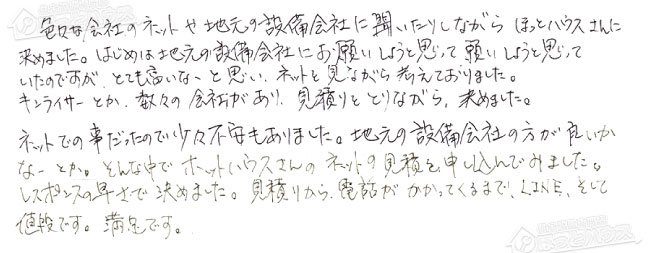 色々な会社のネットや地元の設備会社に聞いたりしながら ほっとハウスさんに
決めました。はじめは地元の設備会社にお願いしようと思って 願いしようと思って
いたのですが、とても高いな〜と思い、ネットと見ながら考えておりました。
キンライサーとか、数々の会社があり、見積りととりながら、決めました。
ネットでの事だったので少々不安もありました。地元の設備会社の方が良いか
な〜とか。そんな中でホットハウスさんのネットの見積を申し込んでみました。
レスポンスの早さで決めました。見積りから、電話がかかってくるまで、LINE、そして
値段です。満足です。